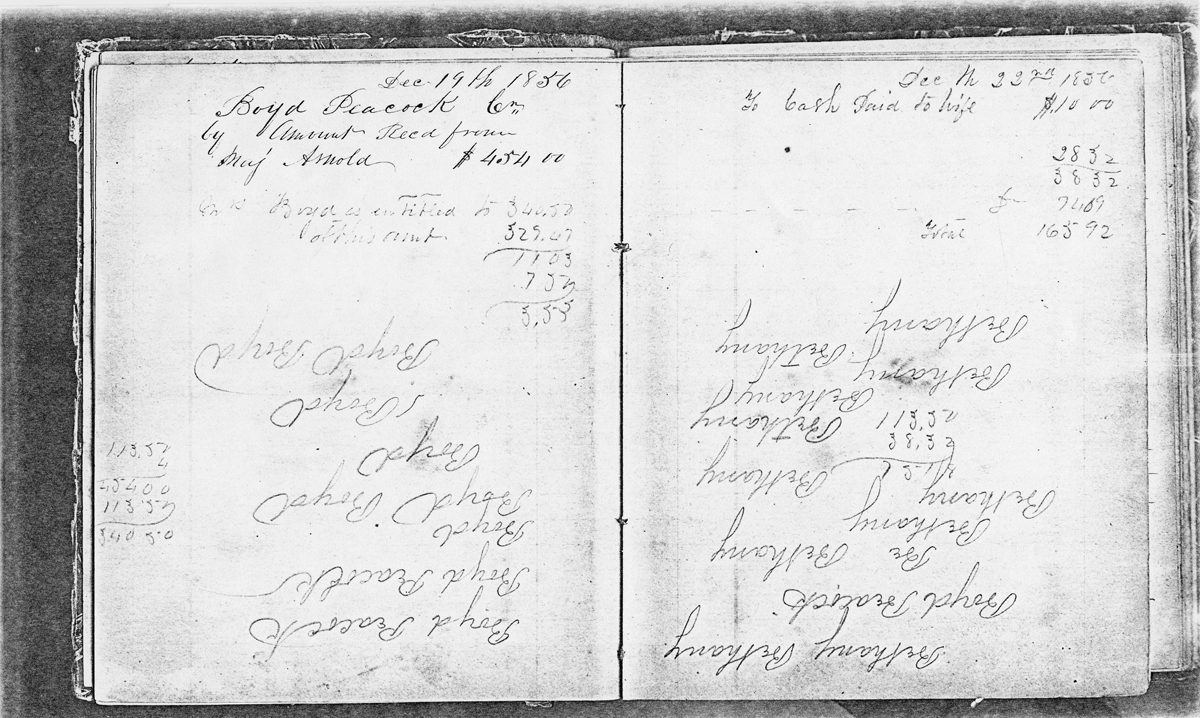 Dec 19th 1856
Boyd Peacock Cr
by Amount Recd from
Maj Arnold $454 00
Boyd is entitled to 340.50
of this amt 329.47
11 03
7 52
3,55
Boyd Boyd
Boyd
Boyd
Boyd Boyd
Boyd
Boyd Peacock
Boyd Peacock
113.52
4
454 00
113.52
340 50
Dec th 22nd 1856
To Cash Paid to wife $10 00
28 32
38 32
74 09
165 92
Bethany
Bethany Bethany
Bethany
Bethany
Bethany Be
113,52
38,32
Bethany Bethany
Bethany
Bethany
Bethany Be
Boyd Peacock
Bethany Bethany